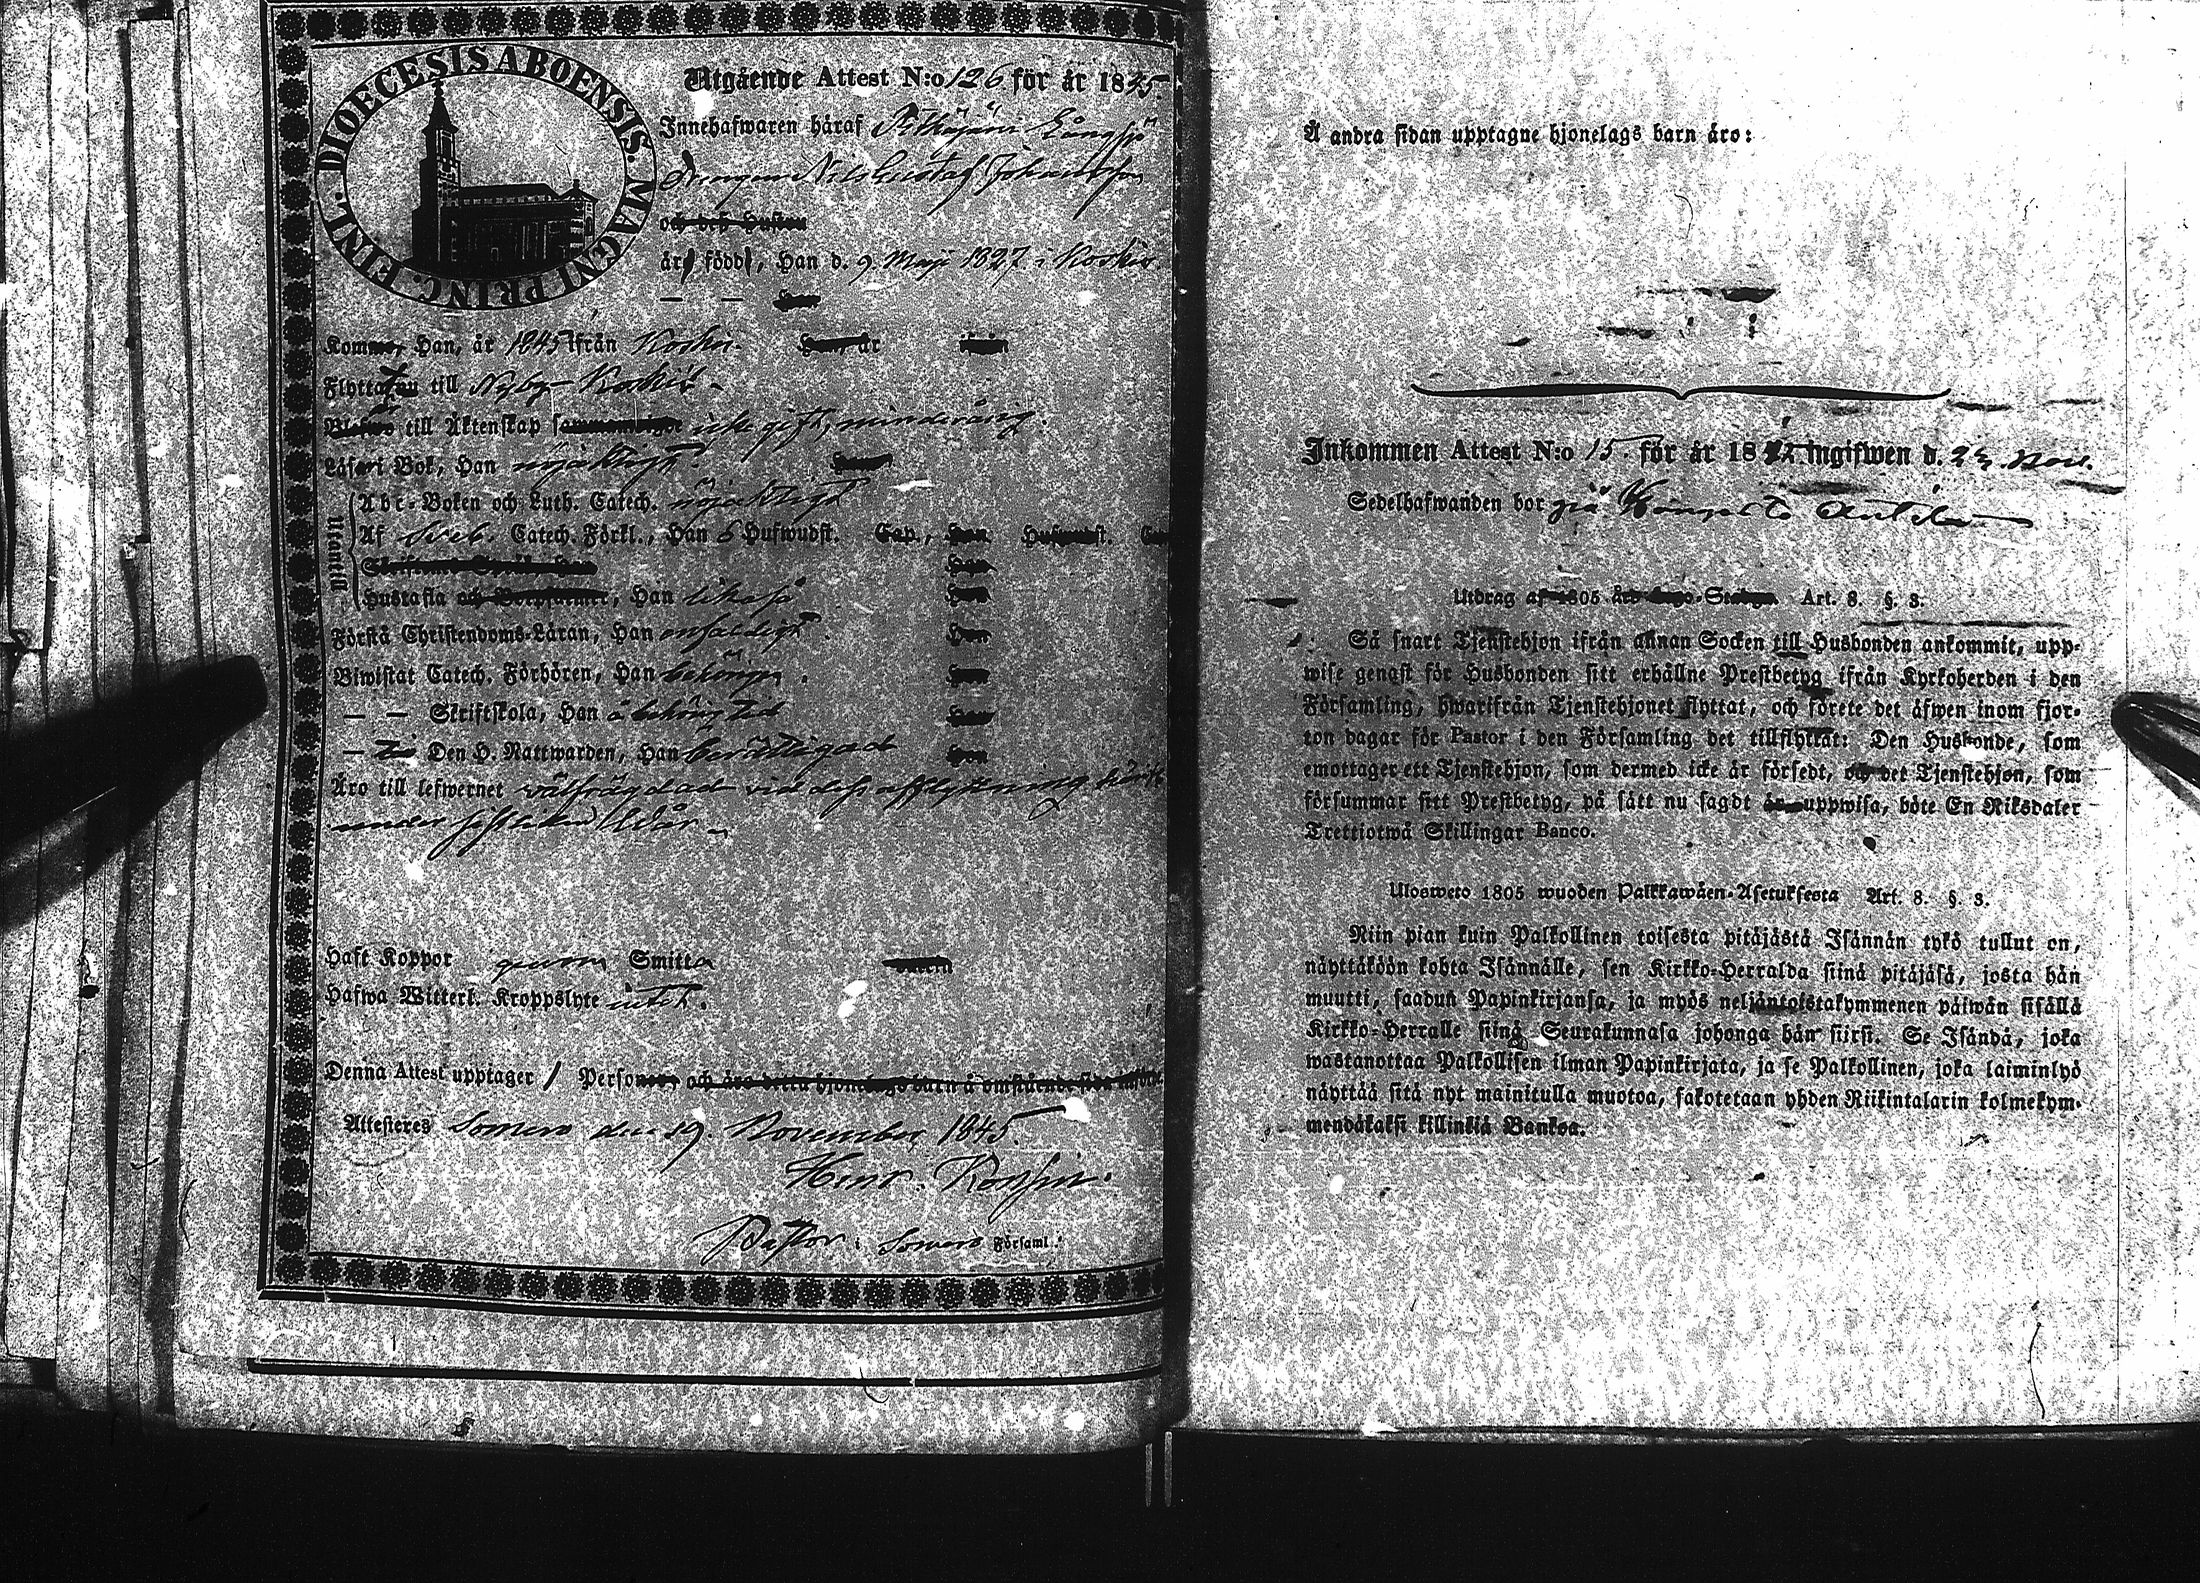 DIOECESIS ABOENSIS. MAGNI PRINC. FINL.
Utgående Attest N:o 126 för år 1845.
Innehafwaren häraf Pitkäjärvi Långsjö
Drengen Nils Gustaf Johansson
och des Hustru
är född, Han d. 9. Maji 1827 i Koskis.
— —
Kommer Han, år 1845 ifrån Koskis. år
Flyttar till Nyby Koskis.
till Äktenskap icke gift, minderårig.
Läser i Bok, Han nöjaktigt.
Abc-Boken och Luth. Catech. nöjaktigt
Utantill
Af Sveb. Catech. Förkl., Han 6 Hufwudst. Cap.,
Hustafla, Han likaså
Förstå Christendoms-Läran, Han enfaldigt.
Biwistat Catech. Förhören, Han behörigen.
— — Skriftskola, Han å behörig tid
— Den H. Nattwarden, Han berättigad
Äro till lefwernet välfrägdad vid dess afflyttning
under sistlidne
Haft Koppor genom Smitta
Hafwa Witterl. Kroppslyte intet.
Denna Attest upptager 1 Person
Attesteres Somero den 19. November 1845.
Henr.
Pastor i Somero Församl.
Å andra sidan upptagne hjonelags barn äro:
Inkommen Attest N:o 15. för år 1845 ingifwen d. Nov.
Sedelhafwanden bor på Anttila
Utdrag af 1805 års Lego-Stadga Art. 8. §. 3.
Så snart Tjenstehjon ifrån annan Socken till Husbonden ankommit, upp-
wise genast för Husbonden sitt erhållne Prestbetyg ifrån Kyrkoherden i den
Församling, hwarifrån Tjenstehjonet flyttat, och förete det äfwen inom fjor-
ton dagar för Pastor i den Församling det tillflyttat: Den Husbonde, som
emottager ett Tjenstehjon, som dermed icke är försedt, och det Tjenstehjon, som
försummar sitt Prestbetyg, på sätt nu sagdt är uppwisa, böte En Riksdaler
Trettiotwå Skillingar Banco.
Ulosweto 1805 wuoden Palkkawäen-Asetuksesta Art. 8. §. 3.
Niin pian kuin Palkollinen toisesta pitäjästä Isännän tykö tullut on,
näyttäköön kohta Isännälle, sen Kirkko-Herralda siinä pitäjäsä, josta hän
muutti, saadun Papinkirjansa, ja myös neljäntoistakymmenen päiwän sisällä
Kirkko-Herralle siinä Seurakunnasa johonga hän siirsi. Se Isändä, joka
wastanottaa Palkollisen ilman Papinkirjata, ja se Palkollinen, joka laiminlyö
näyttää sitä nyt mainitulla muotoa, sakotetaan yhden Riikintalarin kolmekym-
mendäkaksi killinkiä Bankoa.